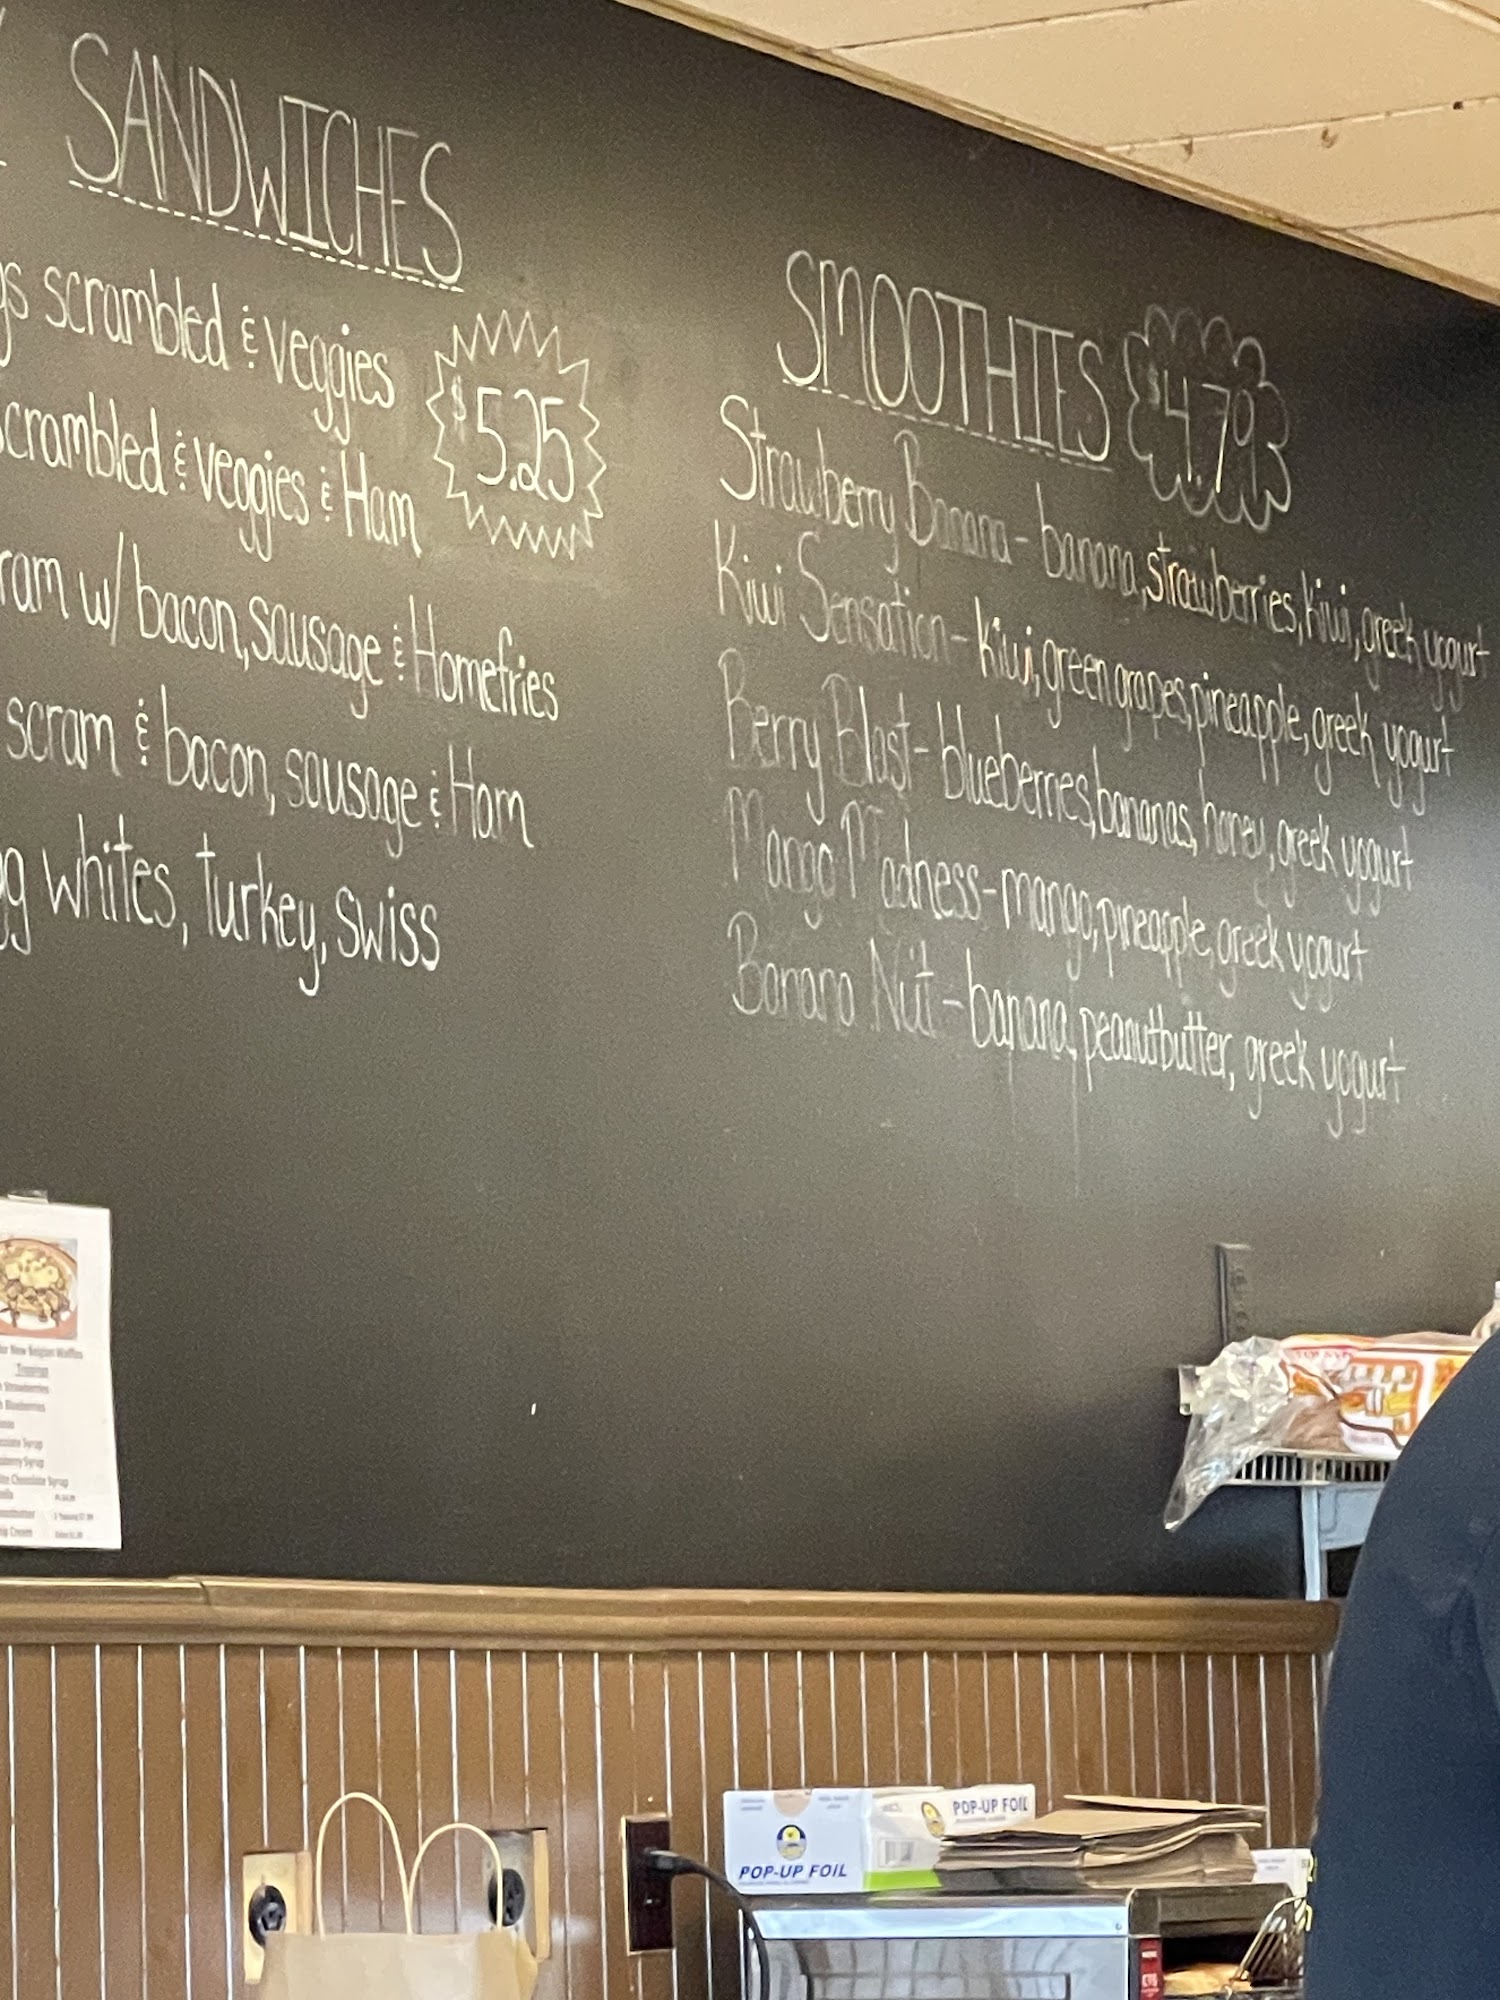 SANDWICHES
scrambled & veggies
$5.25
scrambled & veggies & Ham
w/ bacon, sausage & Homefries
scram & bacon, sausage & Ham
whites, turkey, swiss
SMOOTHIES
$4.79
Strawberry Banana - banana, strawberries, kiwi, greek yogurt
Kiwi Sensation - kiwi, green grapes, pineapple, greek yogurt
Berry Blast - blueberries, bananas, honey, greek yogurt
Mango Madness - mango, pineapple, greek yogurt
Banana Nut - banana, peanutbutter, greek yogurt
New Belgian Waffles
Toppings
Strawberries
Blueberries
Syrup
Syrup
Chocolate Syrup
Cream
POP-UP FOIL
POP-UP FOIL